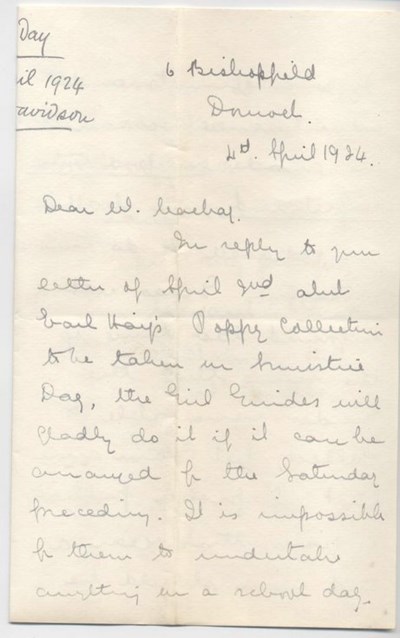 Day
il 1924
avidson
6 Bishopfield
Dornoch.
4th. April 1924.
Dear Mr. Mackay.
In reply to your
letter of April 2nd about
Earl Haig's Poppy Collection
to be taken on Armistice
Day, the Girl Guides will
gladly do it if it can be
arranged for the Saturday
preceding. It is impossible
for them to undertake
anything on a school day.